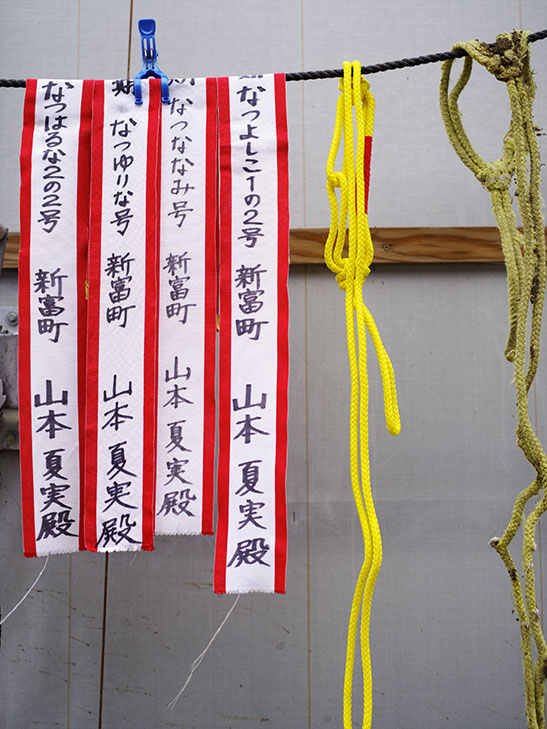 なつよしこ1の2号 新富町 山本夏実殿
なつななみ号 新富町 山本夏実殿
なつゆりな号 新富町 山本夏実殿
なつはるな2の2号 新富町 山本夏実殿